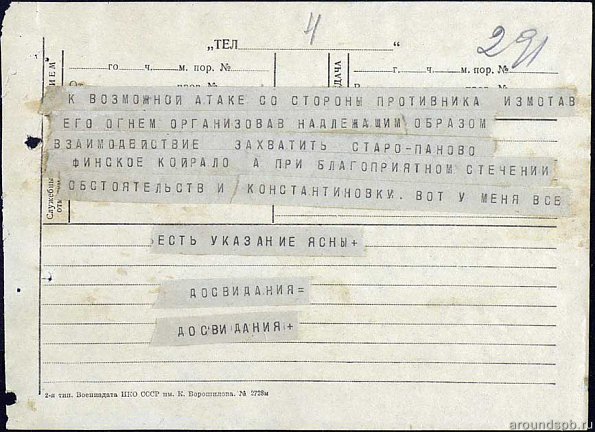 4
291
„ТЕЛ “
го ч. м. пор. №
г. ч. м. пор. №
К ВОЗМОЖНОЙ АТАКЕ СО СТОРОНЫ ПРОТИВНИКА ИЗМОТАВ
ЕГО ОГНЕМ ОРГАНИЗОВАВ НАДЛЕЖАЩИМ ОБРАЗОМ
ВЗАИМОДЕЙСТВИЕ ЗАХВАТИТЬ СТАРО-ПАНОВО
ФИНСКОЕ КОЙРАЛО А ПРИ БЛАГОПРИЯТНОМ СТЕЧЕНИИ
ОБСТОЯТЕЛЬСТВ И КОНСТАНТИНОВКУ. ВОТ У МЕНЯ ВСЕ
ЕСТЬ УКАЗАНИЕ ЯСНЫ+
ДОСВИДАНИЯ=
ДОСВИДАНИЯ+
2-я тип. Воениздата НКО СССР им. К. Ворошилова. № 2738м
aroundspb.ru